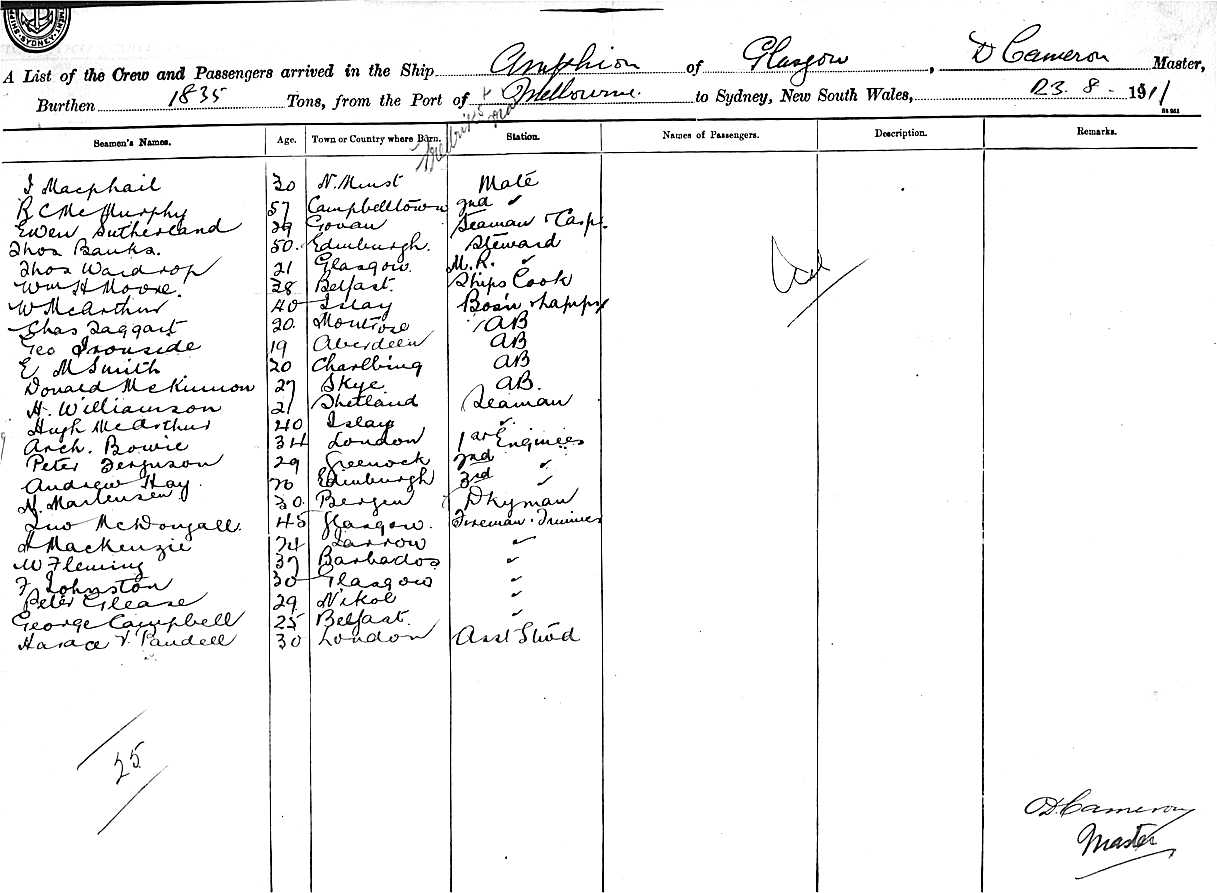 SYDNEY
A List of the Crew and Passengers arrived in the Ship Amphion of Glasgow, D Cameron Master,
Burthen 1835 Tons, from the Port of Melbourne. to Sydney, New South Wales, 23. 8 - 1911
Seamen's Names. Age. Town or Country where Born. Station. Names of Passengers. Description. Remarks.
J Macphail 30 N. Mate
R C McMurphy 57 Campbelltown 2nd ✓
Ewen Sutherland 29 Govan Seaman
Thos Banks. 50. Edinburgh. Steward
Thos Wardrop 21 Glasgow. M. R. ✓
Wm H Moore. 38 Belfast. Ships Cook
W McArthur 40 Islay Bos'n
Chas Taggart 20. Montrose AB
Geo Ironside 19 Aberdeen AB
E M Smith 20 AB
Donald McKinnon 27 Skye AB.
H. Williamson 21 Shetland Seaman
Hugh McArthur 40 Islay ✓
Arch. Bowie 34 London 1st Engineer
Peter Ferguson 29 Greenock 2nd ✓
Andrew Hay. Edinburgh 3rd ✓
N. Martensen 30. Bergen Dkyman
Jno McDougall. 45 Glasgow. Fireman Trimmer
A Mackenzie Jarrow ✓
W Fleming 37 Barbados ✓
F Johnston 30 Glasgow ✓
Peter 29 ✓
George Campbell 25 Belfast. ✓
Horace V. Paudell 30 London Asst Stwd
25
D. Cameron
Master